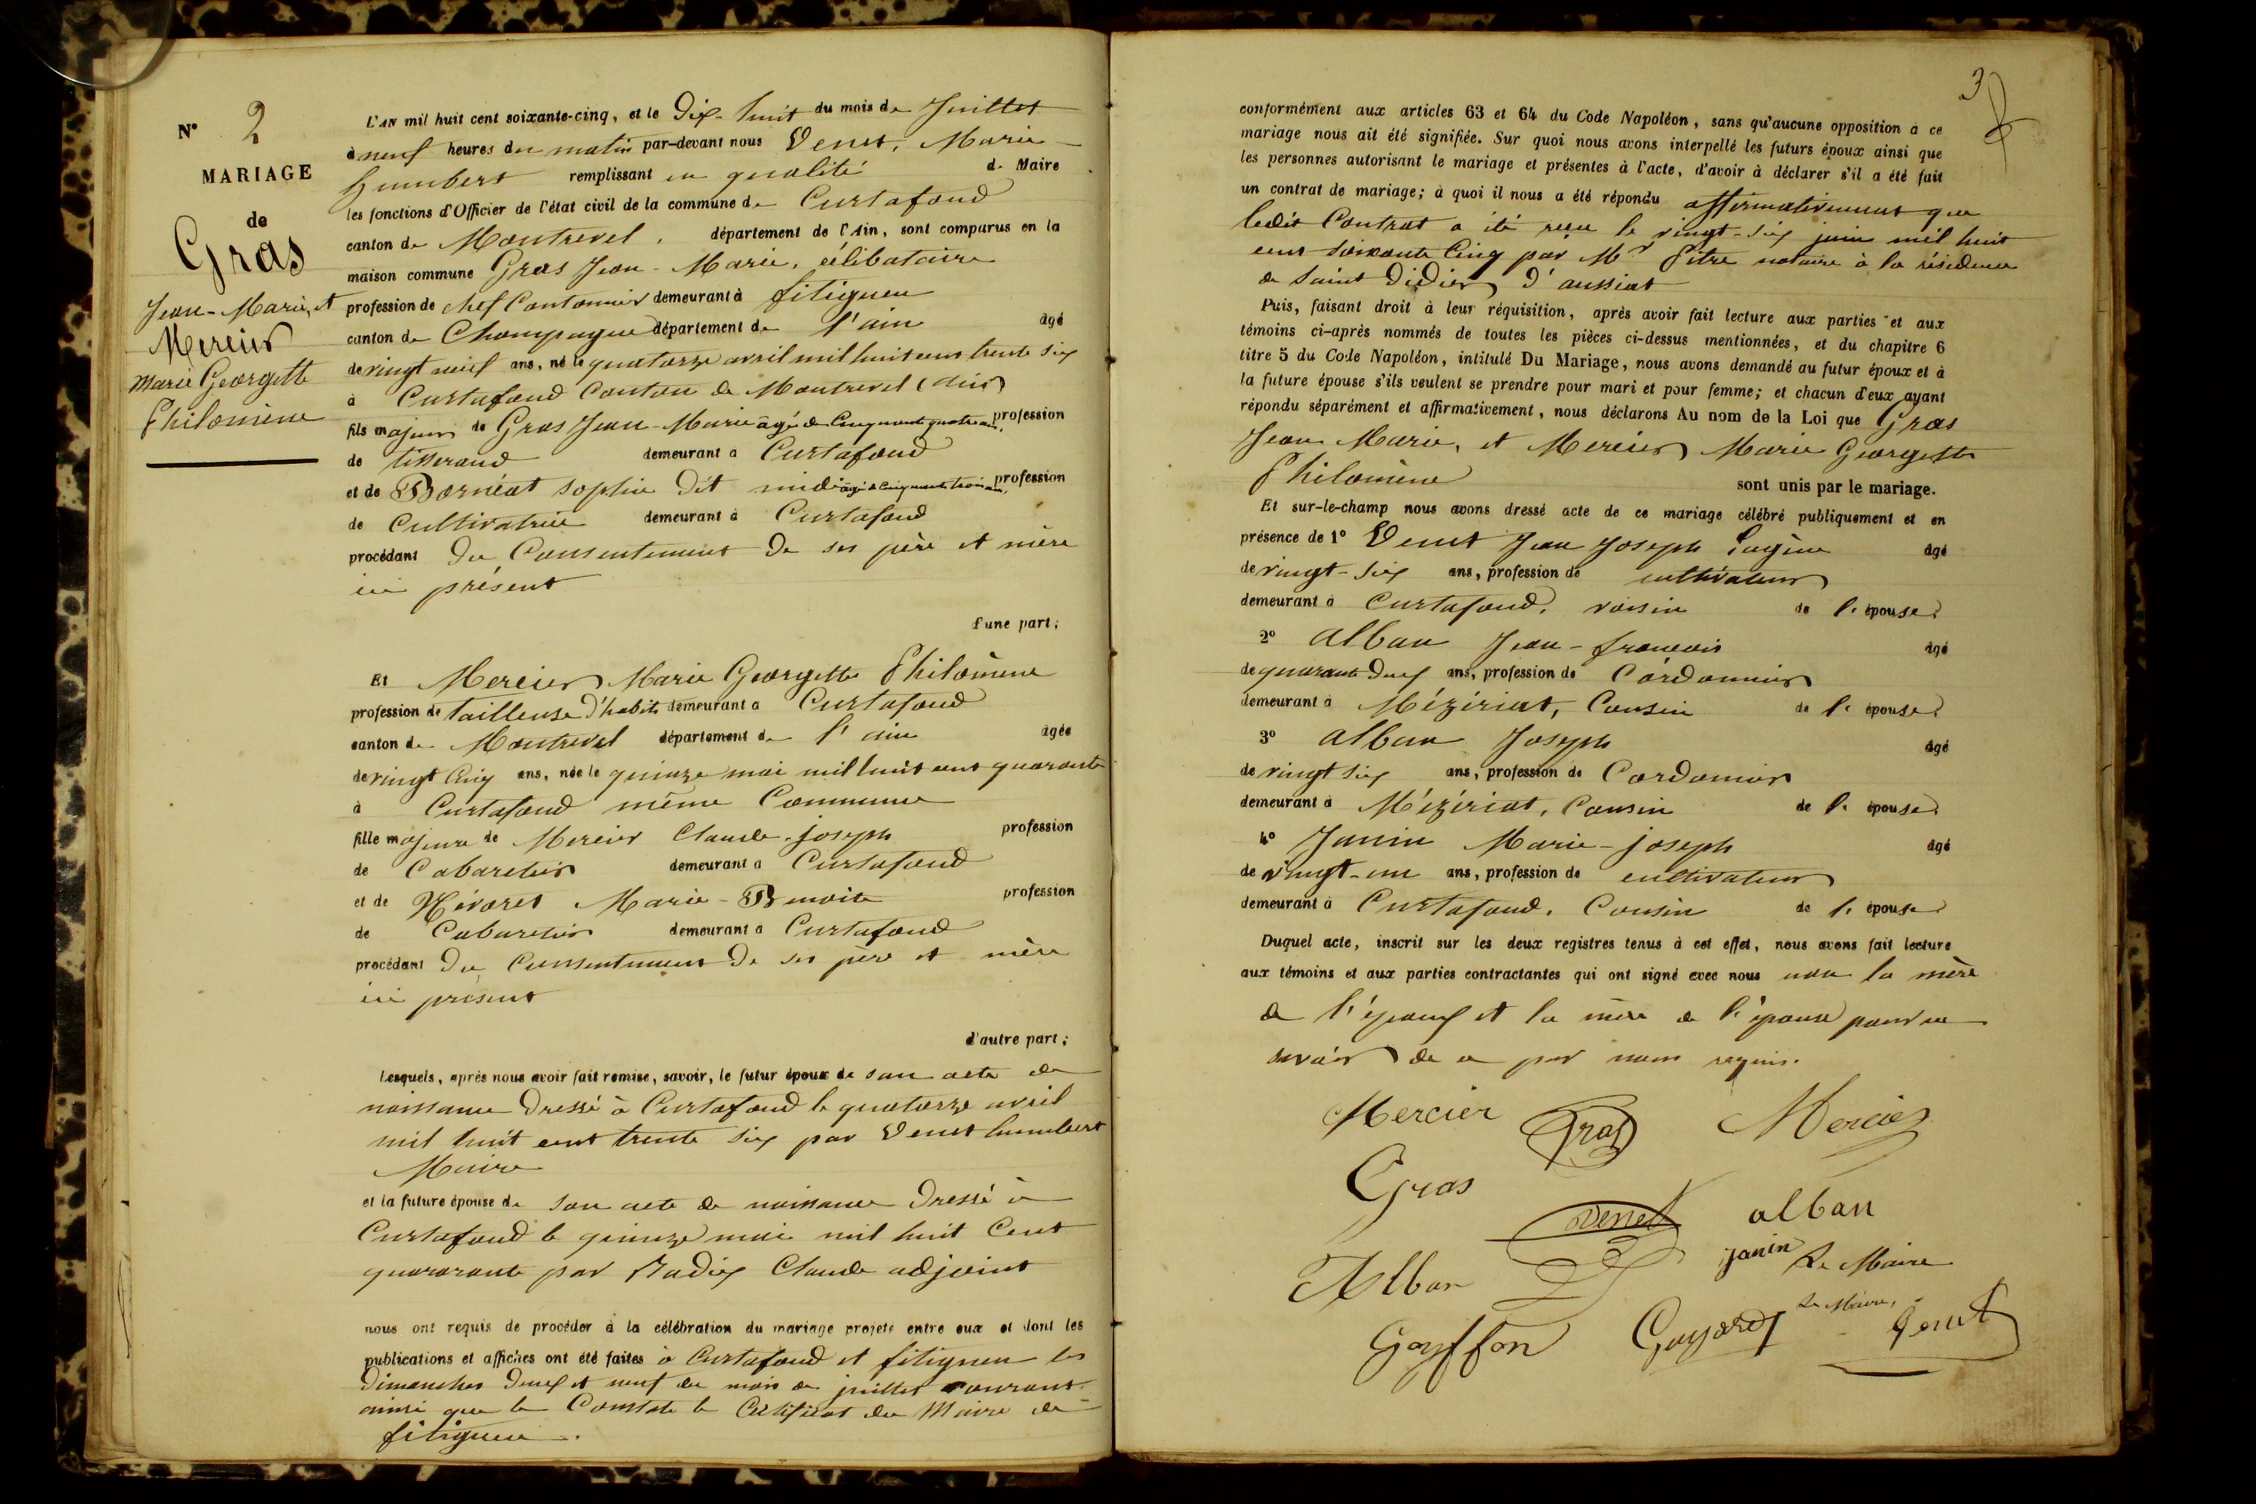 N° 2
MARIAGE
de
Gras
Jean-Marie, et
Mercier
Marie Georgette
Philomène
L'AN mil huit cent soixante-cinq, et le Dix-huit du mois de Juillet
à neuf heures du matin par-devant nous Venet, Marie
humbert remplissant en qualité de Maire
les fonctions d'Officier de l'état civil de la commune de Curtafond
canton de Montrevel, département de l'Ain, sont comparus en la
maison commune Gras Jean-Marie, célibataire
profession de chef Cantonnier demeurant à fitignieu
canton de Champagne département de l'ain âgé
de vingt neuf ans, né le quatorze avril mil huit cent trente six
à Curtafond Canton de Montrevel (ain)
fils majeur de Gras Jean-Marie âgé de Cinquante quatre ans, profession
de tisserand demeurant à Curtafond
et de Bornéat Sophie dit midi âgée de cinquante trois ans, profession
de Cultivatrice demeurant à Curtafond
procédant du Consentement de ses père et mère
ici présent
d'une part;
Et Mercier Marie Georgette Philomène
profession de tailleuse d'habits demeurant à Curtafond
canton de Montrevel département de l'ain âgée
de vingt Cinq ans, née le quinze mai mil huit cent quarante
à Curtafond même Commune
fille majeure de Mercier Claude-joseph profession
de Cabaretier demeurant à Curtafond
et de Névoret Marie-Benoite profession
de Cabaretier demeurant à Curtafond
procédant du Consentement de ses père et mère
ici présent
d'autre part;
Lesquels, après nous avoir fait remise, savoir, le futur époux de son acte de
naissance dressé à Curtafond le quatorze avril
mil huit cent trente six par Venet humbert
Maire
et la future épouse de son acte de naissance dressé à
Curtafond le quinze mai mil huit Cent
quararante par Radix Claude adjoint
nous ont requis de procéder à la célébration du mariage projeté entre eux et dont les
publications et affiches ont été faites à Curtafond et fitignieu les
dimanches deux et neuf du mois de juillet courant
ainsi que le Constate le Certificat du Maire de
fitignieu.
3
conformément aux articles 63 et 64 du Code Napoléon, sans qu'aucune opposition à ce
mariage nous ait été signifiée. Sur quoi nous avons interpellé les futurs époux ainsi que
les personnes autorisant le mariage et présentes à l'acte, d'avoir à déclarer s'il a été fait
un contrat de mariage; à quoi il nous a été répondu affirmativement que
ledit Contrat a été reçu le vingt-six juin mil huit
cent soixante Cinq par Mr Pitre notaire à la résidence
de Saint Didier d'aussiat
Puis, faisant droit à leur réquisition, après avoir fait lecture aux parties et aux
témoins ci-après nommés de toutes les pièces ci-dessus mentionnées, et du chapitre 6
titre 5 du Code Napoléon, intitulé Du Mariage, nous avons demandé au futur époux et à
la future épouse s'ils veulent se prendre pour mari et pour femme; et chacun d'eux ayant
répondu séparément et affirmativement, nous déclarons Au nom de la Loi que Gras
Jean Marie, et Mercier Marie Georgette
Philomène sont unis par le mariage.
Et sur-le-champ nous avons dressé acte de ce mariage célébré publiquement et en
présence de 1° Venet Jean Joseph Eugène âgé
de vingt-six ans, profession de cultivateur
demeurant à Curtafond, voisin de l'épouse
2° Alban Jean-francois âgé
de quarante deux ans, profession de Cordonnier
demeurant à Mézériat, Cousin de l'épouse
3° Alban Joseph âgé
de vingt six ans, profession de Cordonnier
demeurant à Mézériat, Cousin de l'épouse
4° Janin Marie-joseph âgé
de vingt-un ans, profession de cultivateur
demeurant à Curtafond, Cousin de l'épouse
Duquel acte, inscrit sur les deux registres tenus à cet effet, nous avons fait lecture
aux témoins et aux parties contractantes qui ont signé avec nous non la mère
de l'époux et la mère de l'épouse pour ne
savoir de ce par nous requis.
Mercier Gras Mercier
Gras
Venet alban
Alban janin Le Maire
Le Maire,
Goyffon Guyard Venet